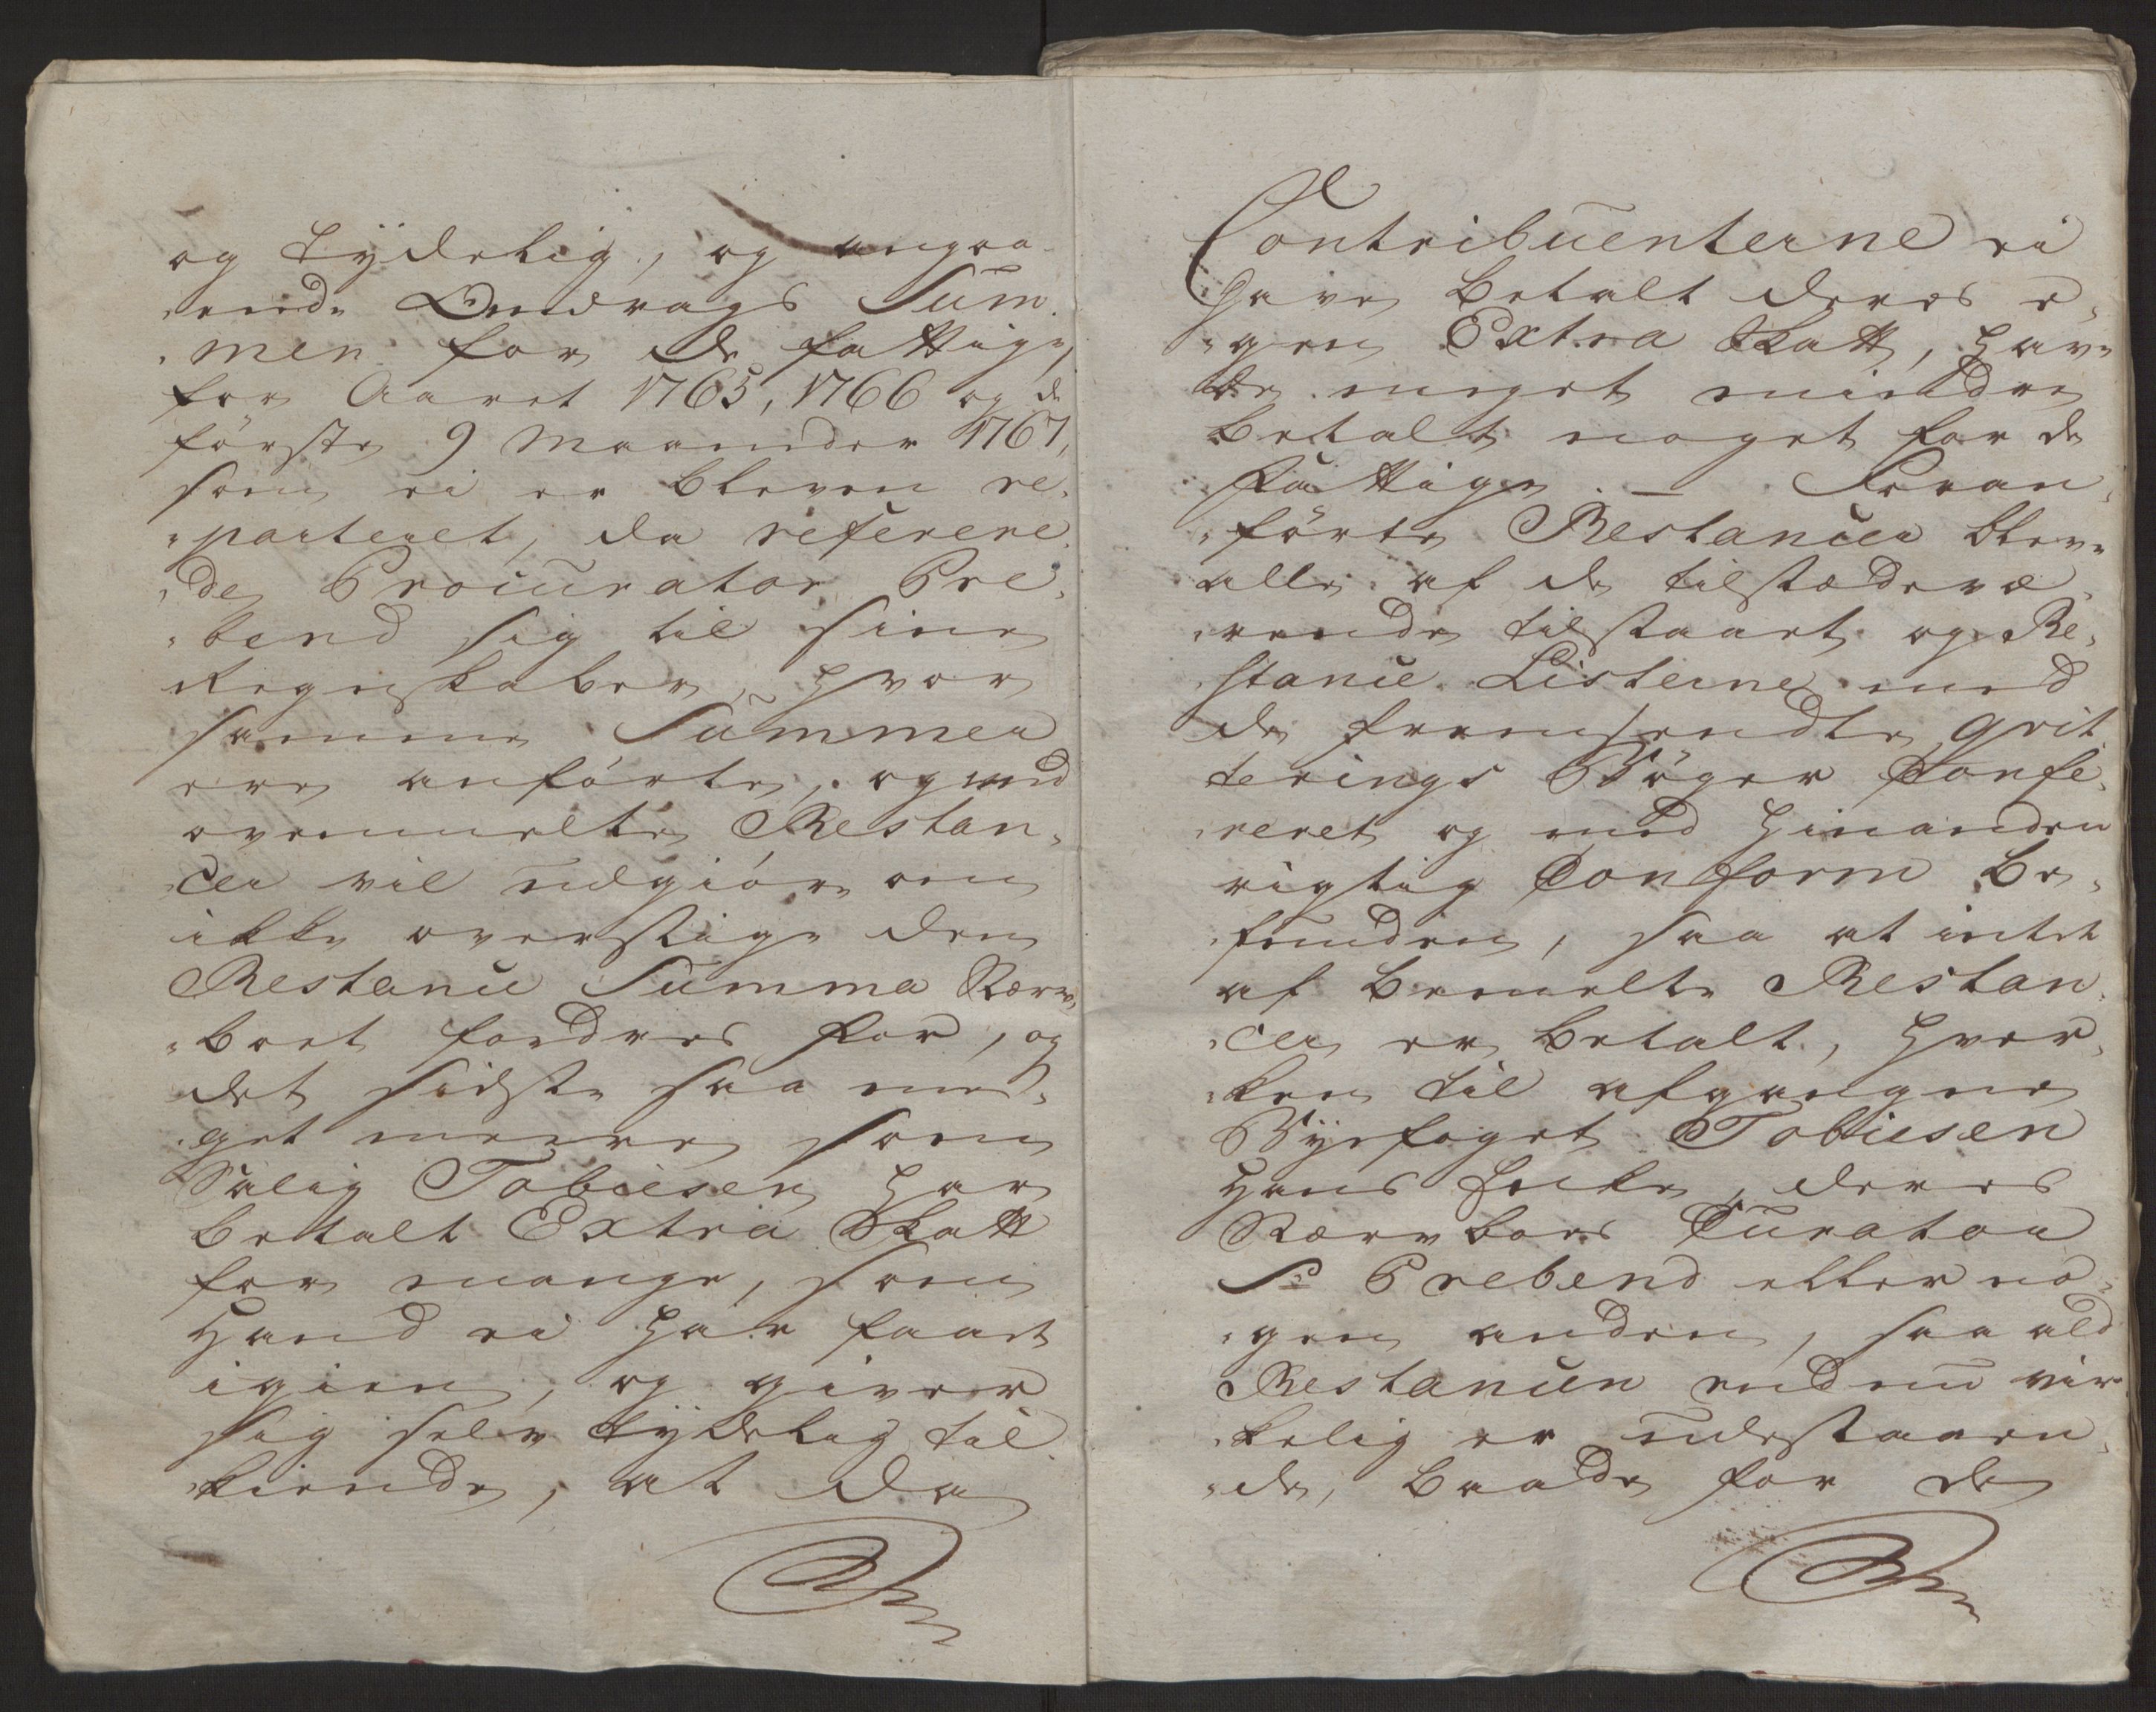 og tÿdelig, og angaa-
„ende Omdrags Sum-
„men for de fattige,
for Aaret 1765, 1766 og de
förste 9 Maaneder 1767,
som ei er bleven re„
„parteret, da referere„
„de Procurator Pre„
„bend sig til sine
Regnskaber, hvor
samme Summer
ere anförte, og med
ovenmelte Restan„
„cer vil udgiöre om
ikke overstige den
Restance Summa Sterv„
„boet fordres for, og
det sidste saa me„
„get meere som
Salig Tobiesen har
betalt Extra Skatt
for mange, som
Hand ei har faaet
igien, og giver
sig selv tÿdelig til„
„kiende, at da
Contribuenterne ei
have betalt deres e„
„gen Extra Skatt, have
de meget mindre
betalt noget for de
fattige. — Foran„
„förte Restancer bleve
alle af de tilstædevæ„
„rende tilstaaet og Re„
„stance Listerne med
de fremsendte Qvit„
terings Böger Confe„
„reret og med hinanden
rigtig Conform be„
„funden, saa at intet
af bemelte Restan„
„cer er betalt, hver„
„ken til afgangne
Bÿefoget Tobiesen
Hans Encke, deres
Sterv boes Curator
Sr Prebend eller no„
„gen anden, saa ald
Restancen endnu vir„
„kelig er udestaaen„
„de, baade for de